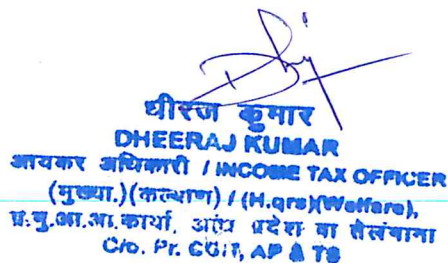 धीरज कुमार
DHEERAJ KUMAR
आयकर अधिकारी / INCOME TAX OFFICER
(मुख्या.)(कल्याण) / (H.qrs)(Welfare),
प्र.मु.आ.आ.कार्या. आंध्र प्रदेश वा तेलंगाना
C/o. Pr. CCIT, AP & TS